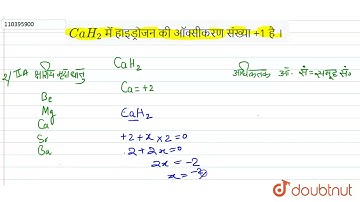 110395900
CaH2 में हाइड्रोजन की ऑक्सीकरण संख्या +1 है ।
CaH2
2/ IIA क्षारीय मृदा धातु
अधिकतम ऑ. सं = समूह सं०
Be
Ca = +2
Mg
CaH2
Ca
Sr
+2 + x × 2 = 0
Ba
2 + 2x = 0
2x = -2
x =
doubtnut